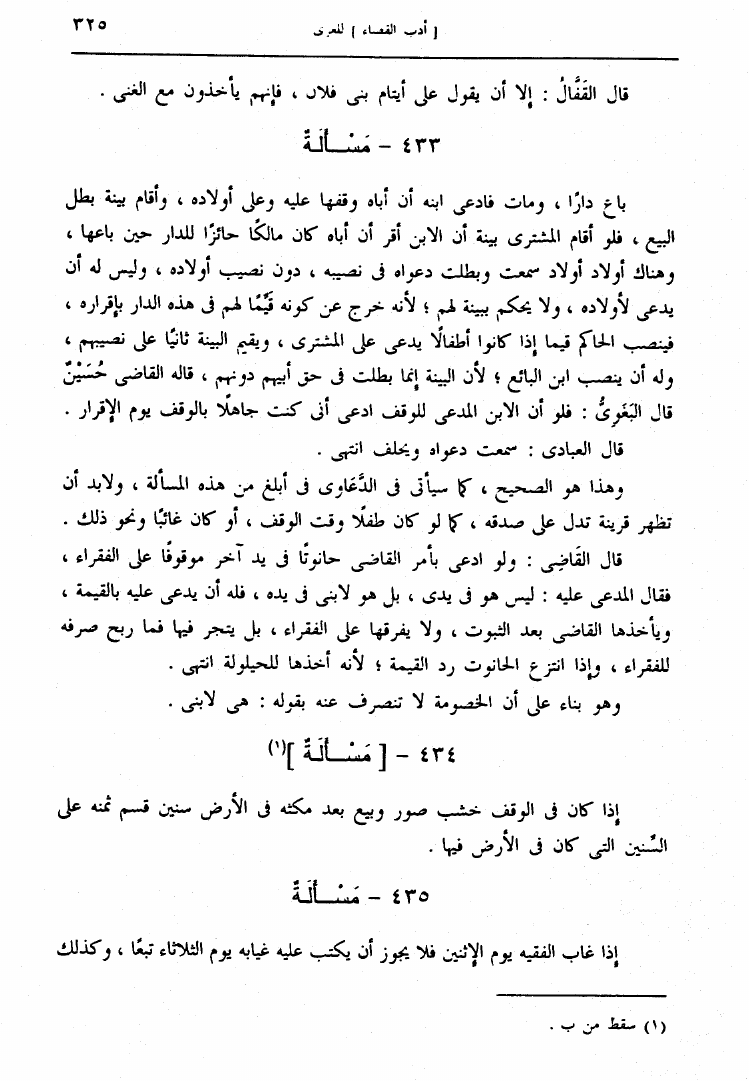 [ أدب القضاء ] للغزى ٣٢٥
قال القَفَّالُ : إلا أن يقول على أيتام بنى فلان ، فإنهم يأخذون مع الغنى .
٤٣٣ - مَسْــألَـةٌ
باع دارًا ، ومات فادعى ابنه أن أباه وقفها عليه وعلى أولاده ، وأقام بينة بطل
البيع ، فلو أقام المشترى بينة أن الابن أقر أن أباه كان مالكًا حائزًا للدار حين باعها ،
وهناك أولاد أولاد سمعت وبطلت دعواه فى نصيبه ، دون نصيب أولاده ، وليس له أن
يدعى لأولاده ، ولا يحكم ببينة لهم ؛ لأنه خرج عن كونه قَيِّمًا لهم فى هذه الدار بإقراره ،
فينصب الحاكم قيما إذا كانوا أطفالًا يدعى على المشترى ، ويقيم البينة ثانيًا على نصيبهم ،
وله أن ينصب ابن البائع ؛ لأن البينة إنما بطلت فى حق أبيهم دونهم ، قاله القاضى حُسَيْنٌ
قال البَغَوِىُّ : فلو أن الابن المدعى للوقف ادعى أنى كنت جاهلًا بالوقف يوم الإقرار .
قال العبادى : سمعت دعواه ويحلف انتهى .
وهذا هو الصحيح ، كما سيأتى فى الدَّعَاوى فى أبلغ من هذه المسألة ، ولابد أن
تظهر قرينة تدل على صدقه ، كما لو كان طفلًا وقت الوقف ، أو كان غائبًا ونحو ذلك .
قال القَاضِى : ولو ادعى بأمر القاضى حانوتًا فى يد آخر موقوفًا على الفقراء ،
فقال المدعى عليه : ليس هو فى يدى ، بل هو لابنى فى يده ، فله أن يدعى عليه بالقيمة ،
ويأخذها القاضى بعد الثبوت ، ولا يفرقها على الفقراء ، بل يتجر فيها فما ربح صرفه
للفقراء ، وإذا انتزع الحانوت رد القيمة ؛ لأنه أخذها للحيلولة انتهى .
وهو بناء على أن الخصومة لا تنصرف عنه بقوله : هى لابنى .
٤٣٤ - [ مَسْــألَـةٌ ](١)
إذا كان فى الوقف خشب صور وبيع بعد مكثه فى الأرض سنين قسم ثمنه على
السِّنين التى كان فى الأرض فيها .
٤٣٥ - مَسْــألَـةٌ
إذا غاب الفقيه يوم الإثنين فلا يجوز أن يكتب عليه غيابه يوم الثلاثاء تبعًا ، وكذلك
(١) سقط من ب .